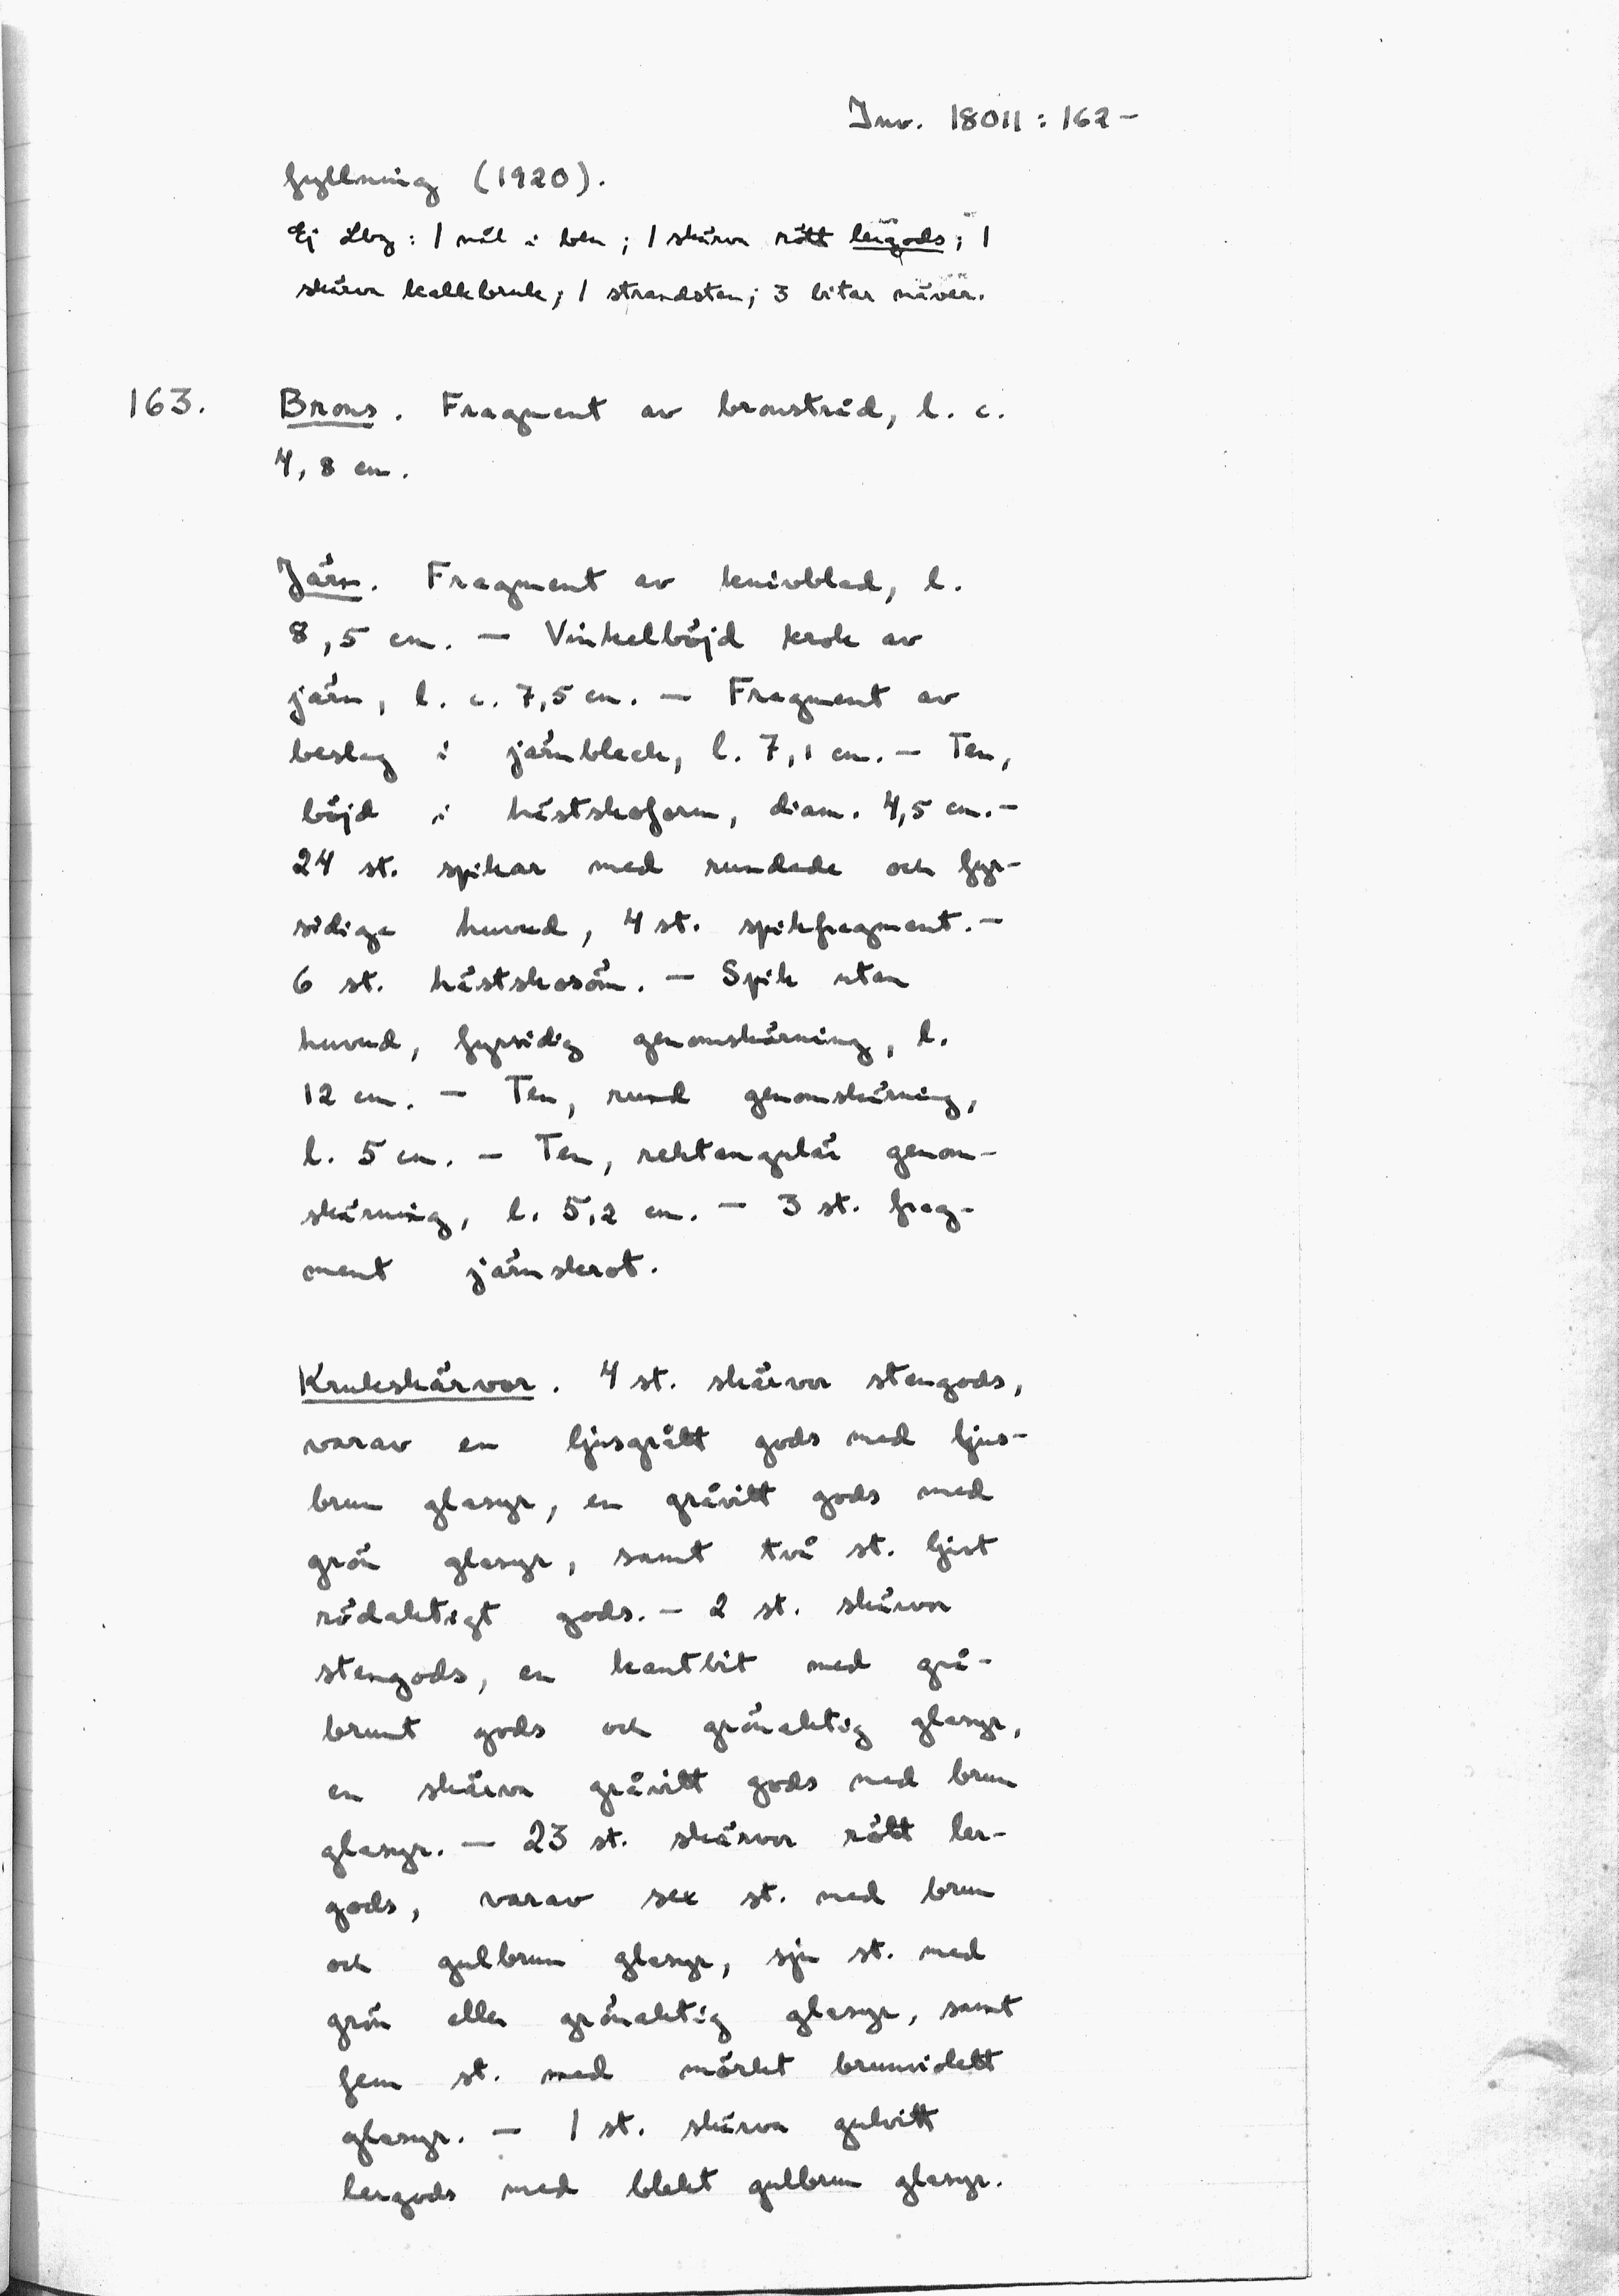 Inv. 18011: 162-
fyllning (1920).
Ej Lbg: 1 nål i ben; 1 skärva rött lergods; 1
skärva kalkbruk; 1 strandsten; 3 bitar näver.
163. Brons. Fragment av bronstråd, l. c.
4,8 cm.
Järn. Fragment av knivblad, l.
8,5 cm. — Vinkelböjd krok av
järn, l. c. 7,5 cm. — Fragment av
beslag i järnbleck, l. 7,1 cm. — Ten,
böjd i hästskoform, diam. 4,5 cm. —
24 st. spikar med rundade och fyr-
sidiga huvud, 4 st. spikfragment. —
6 st. hästskosöm. — Spik utan
huvud, fyrsidig genomskärning, l.
12 cm. — Ten, rund genomskärning,
l. 5 cm. — Ten, rektangulär genom-
skärning, l. 5,2 cm. — 3 st. frag-
ment järnskrot.
Krukskärvor. 4 st. skärvor stengods,
varav en ljusgrått gods med ljus-
brun glasyr, en gråvitt gods med
grön glasyr, samt två st. ljust
rödaktigt gods. — 2 st. skärvor
stengods, en kantbit med grå-
brunt gods och grönaktig glasyr,
en skärva gråvitt gods med brun
glasyr. — 23 st. skärvor rött ler-
gods, varav sex st. med brun
och gulbrun glasyr, sju st. med
grön eller grönaktig glasyr, samt
fem st. med mörkt brunviolett
glasyr. — 1 st. skärva gulvitt
lergods med blekt gulbrun glasyr.